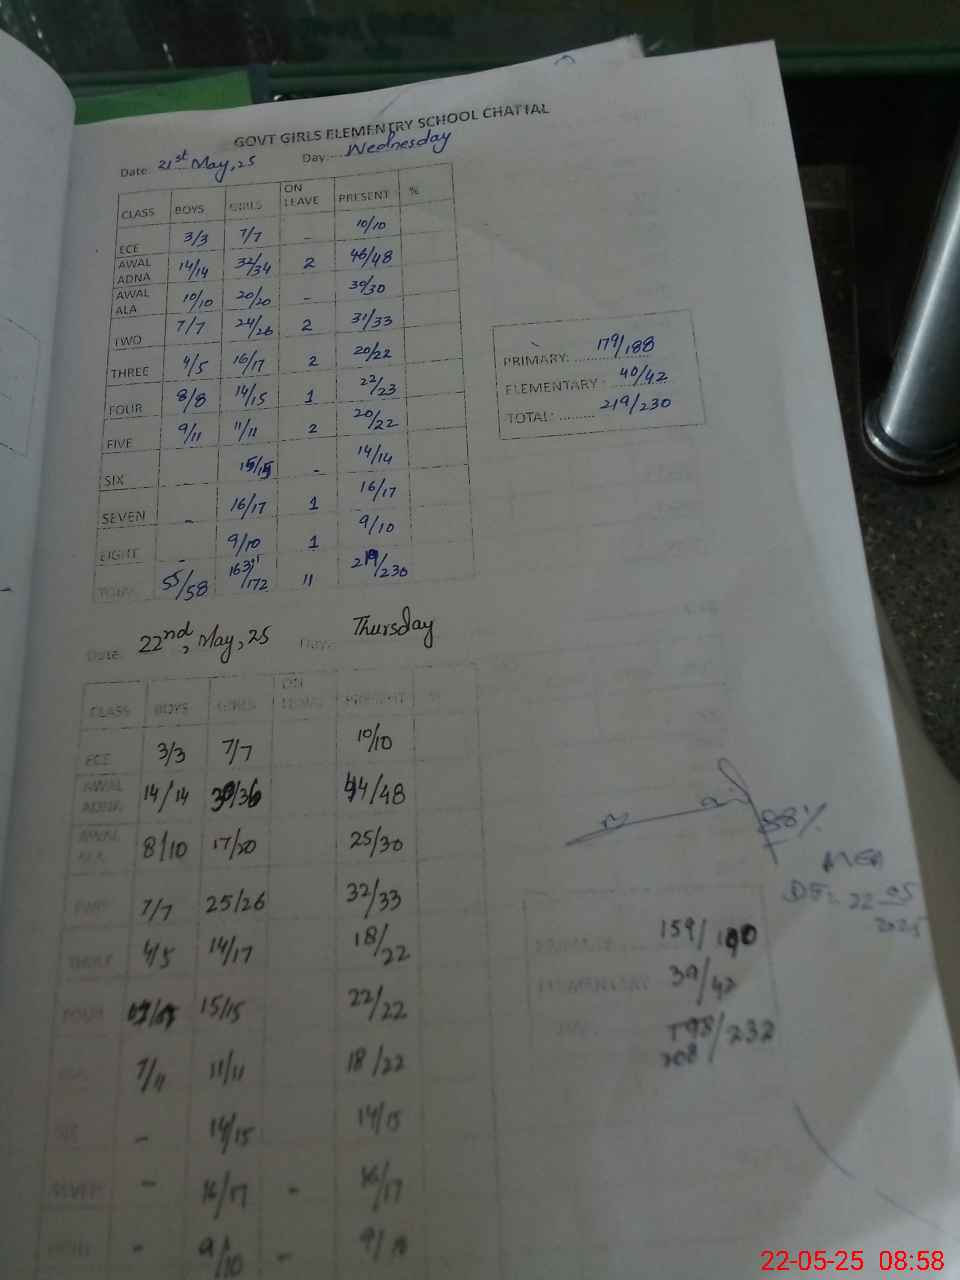 GOVT GIRLS ELEMENTRY SCHOOL CHATTAL
Date: 21st May, 25 Day: Wednesday
CLASS BOYS GIRLS ON LEAVE PRESENT %
ECE 3/3 7/7 - 10/10
AWAL ADNA 14/14 32/34 2 46/48
AWAL ALA 10/10 20/20 - 30/30
TWO 7/7 24/26 2 31/33
THREE 4/5 16/17 2 20/22
FOUR 8/8 14/15 1 22/23
FIVE 9/11 11/11 2 20/22
SIX 15/15 - 14/14
SEVEN - 16/17 1 16/17
EIGHT - 9/10 1 9/10
TOTAL 55/58 163/172 11 219/230
PRIMARY: 179/188
ELEMENTARY: 40/42
TOTAL: 219/230
Date: 22nd, May, 25 Day: Thursday
CLASS BOYS GIRLS ON LEAVE PRESENT %
ECE 3/3 7/7 10/10
AWAL ADNA 14/14 30/36 44/48
AWAL ALA 8/10 17/20 25/30
TWO 7/7 25/26 32/33
THREE 4/5 14/17 18/22
FOUR 15/15 22/22
7/11 11/11 18/22
SIX - 14/15 14/15
SEVEN - 16/17 - 16/17
EIGHT - 9/10 - 9/10
88%
MEA
22-05-2025
PRIMARY 159/190
ELEMENTARY 39/42
198/232
208
22-05-25 08:58